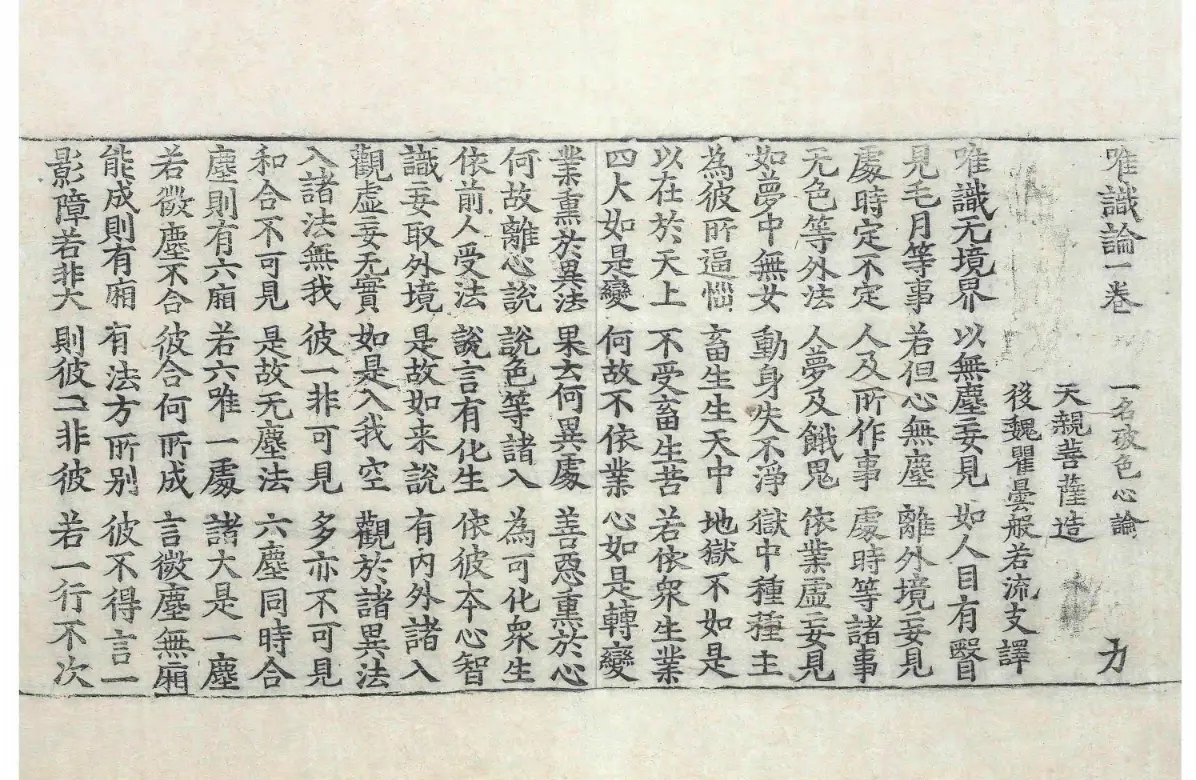 唯識論一卷 一名破色心論 力
天親菩薩造
後魏瞿曇般若流支譯
唯識无境界 以無塵妄見 如人目有瞖
見毛月等事 若但心無塵 離外境妄見
處時定不定 人及所作事 處時等諸事
无色等外法 人夢及餓鬼 依業虛妄見
如夢中無女 動身失不淨 獄中種種主
為彼所逼惱 畜生生天中 地獄不如是
以在於天上 不受畜生苦 若依衆生業
四大如是變 何故不依業 心如是轉變
業熏於異法 果於何異處 善惡熏於心
何故離心說 說色等諸入 為可化衆生
依前人受法 說言有化生 依彼夲心智
識妄取外境 是故如来說 有內外諸入
觀虛妄无實 如是入我空 觀於諸異法
入諸法無我 彼一非可見 多亦不可見
和合不可見 是故无塵法 六塵同時合
塵則有六廂 若六唯一處 諸大是一塵
若微塵不合 彼合何所成 言微塵無廂
能成則有廂 有法方所別 彼不得言一
影障若非大 則彼二非彼 若一行不次